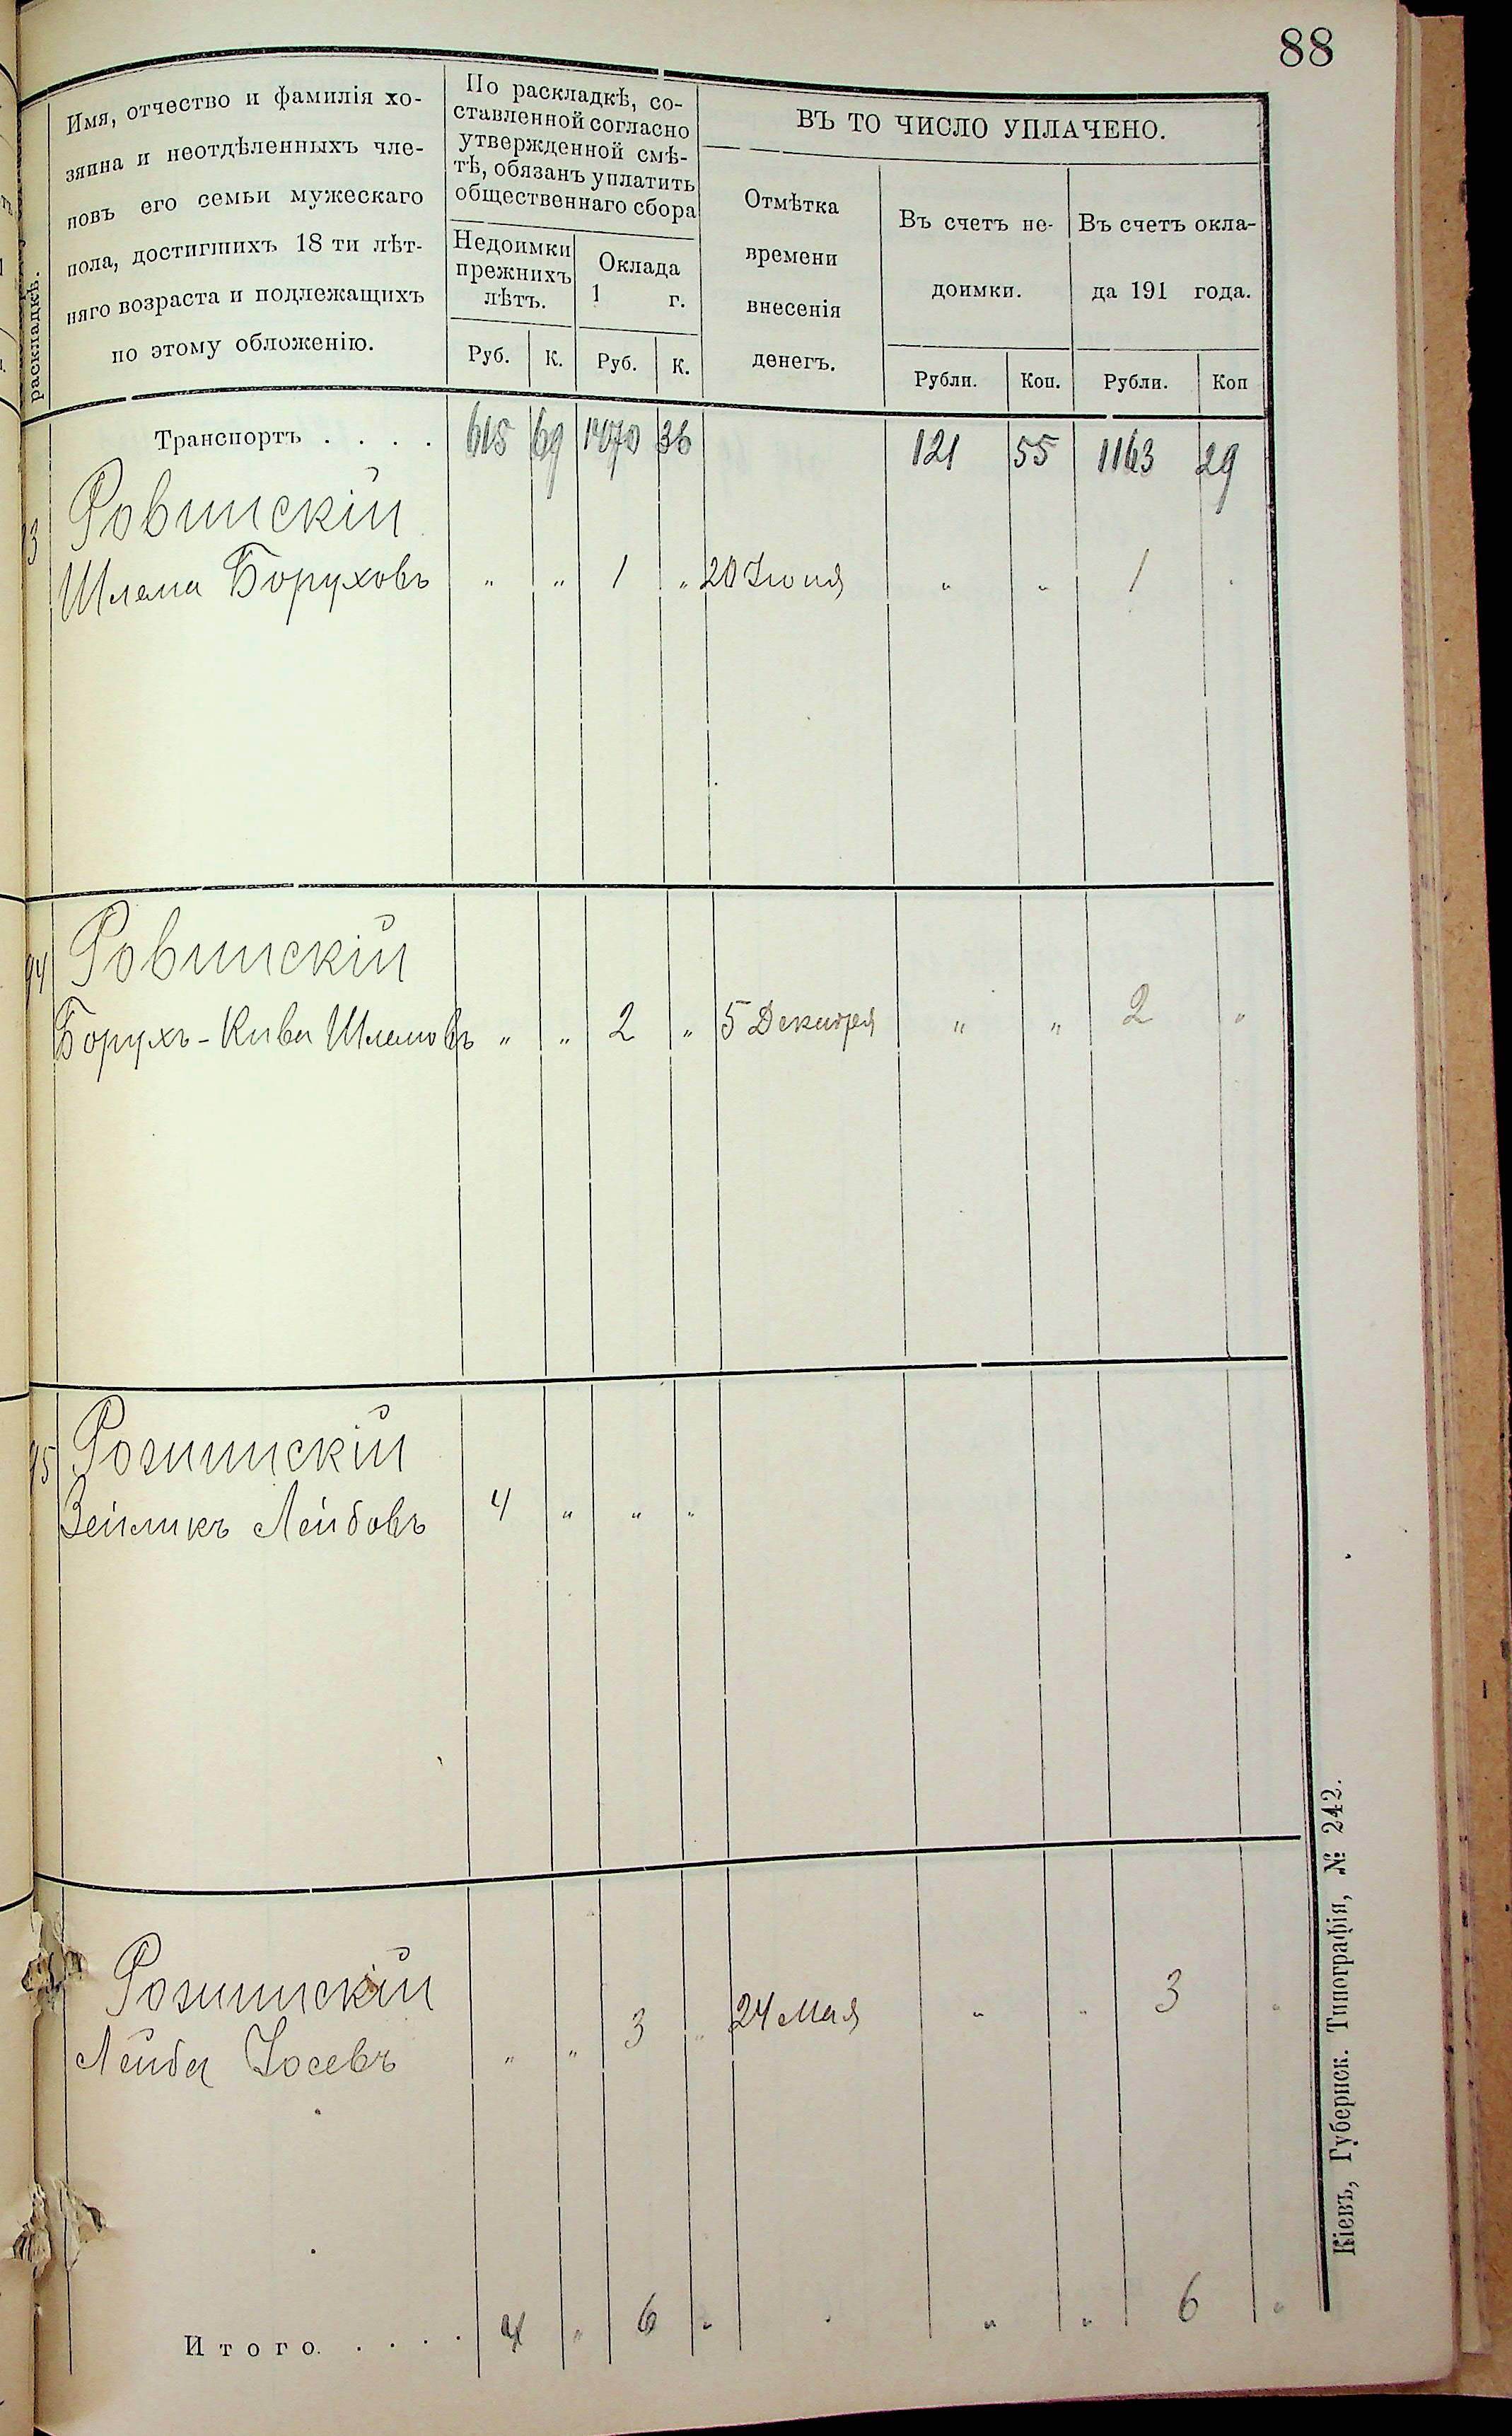 88
раскладкѣ.
Имя, отчество и фамилія хо-
зяина и неотдѣленныхъ чле-
новъ его семьи мужескаго
пола, достигшихъ 18 ти лѣт-
няго возраста и подлежащихъ
по этому обложенію.
По раскладкѣ, со-
ставленной согласно
утвержденной смѣ-
тѣ, обязанъ уплатить
общественнаго сбора
Недоимки
прежнихъ
лѣтъ.
Оклада
1 г.
Руб. К. Руб. К.
ВЪ ТО ЧИСЛО УПЛАЧЕНО.
Отмѣтка
времени
внесенія
денегъ.
Въ счетъ не-
доимки.
Въ счетъ окла-
да 191 года.
Рубли. Коп. Рубли. Коп
Транспортъ . . . . 69 36 121 55 1163 29
Ровинскій
Шлема Боруховъ " " 1 " 20 Іюня " " 1 "
94 Ровинскій
Борухъ-Кива Шлемовъ " " 2 " 5 Декабря " " 2 "
95
Зейликъ Лейбовъ 4 " " "
Лейба Іосевъ " " 3 " 24 Мая " " 3 "
Итого. . . . . 4 " 6 " " " 6 "
Кіевъ, Губернск. Типографія, № 242.